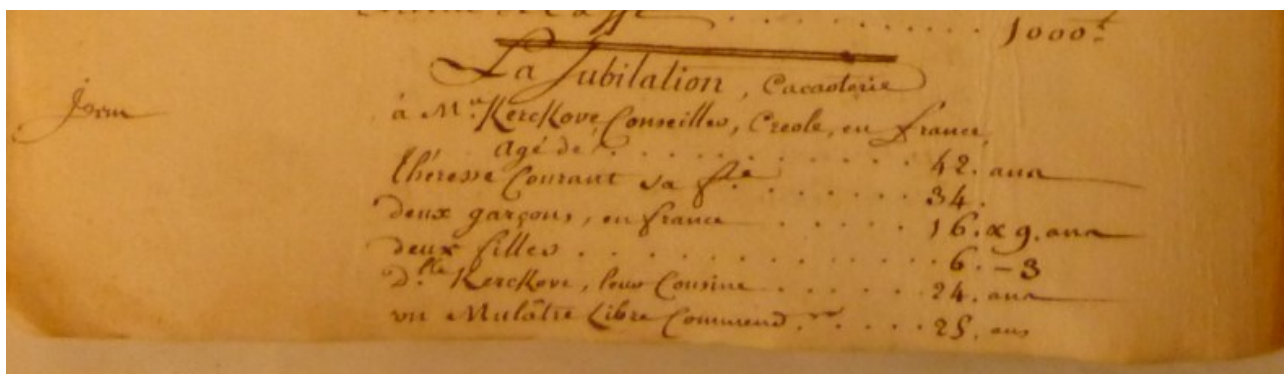 1000ᵗ
La Jubilation, Cacaoterie
à Mʳ. Kerckove Conseiller, Creole, en france,
Agé de . . . . . . . . . . . . 42. ans
théresse Courant sa fᵉ. . . . . . . . 34.
deux garçons, en france . . . . . . 16. & 9. ans
deux filles . . . . . . . . . . . . . . 6. – 3
D.ˡˡᵉ Kerckove, leur Cousine . . . . . . 24. ans
un Mulâtre Libre Commend.ʳ . . . . . 25. ans